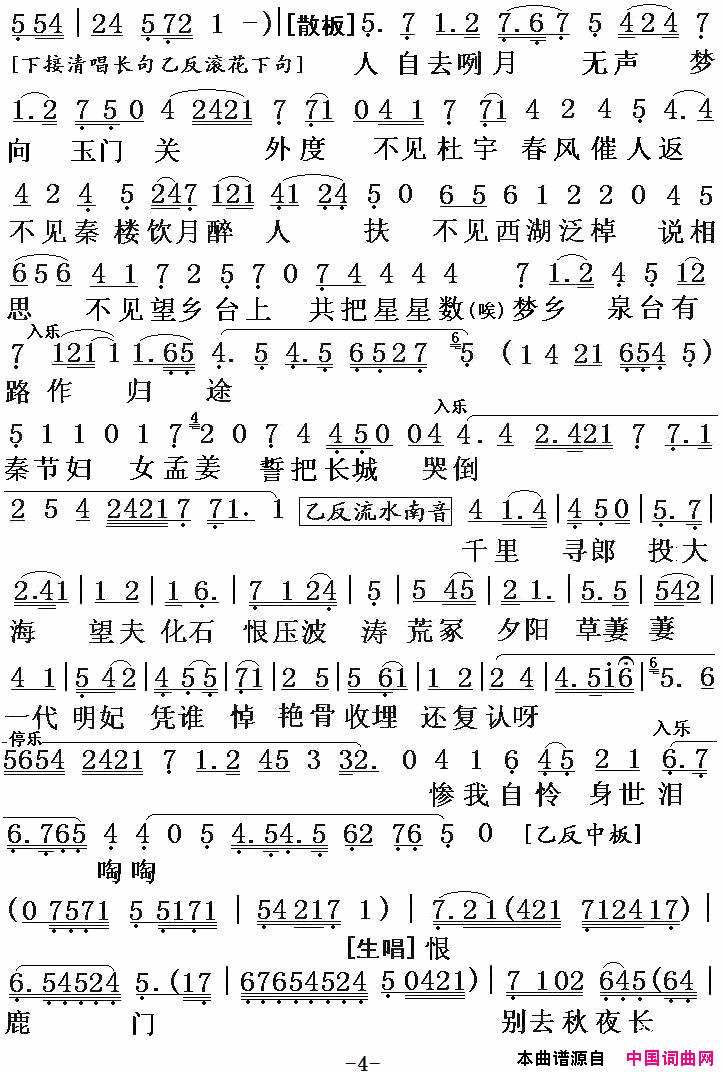 5 5 4 | 2 4 5 7 2 1 - ) | [散板] 5. 7 1.2 7.6 7 5 4 2 4 7
[下接清唱长句乙反滚花下句] 人 自去咧月 无声 梦
1.2 7 5 0 4 2421 7 71 0 4 1 7 71 4 2 4 5 4.4
向 玉门 关 外度 不见杜宇 春风催人返
4 2 4 5 247 121 41 24 5 0 6 5 6 1 2 2 0 4 5
不见秦楼饮月醉 人 扶 不见西湖泛棹 说相
656 4 1 7 2 5 7 0 7 4 4 4 4 7 1.2 4 5 12
思 不见望乡台上 共把星星数(唉)梦乡 泉台有
入乐
7 121 1 1.65 4. 5 4.5 6527 6 5 (1 4 21 654 5)
路作 归 途
入乐
5 1 1 0 1 7 4 2 0 7 4 450 04 4. 4 2.421 7 7.1
秦节妇 女孟姜 誓把长城 哭倒
2 5 4 2421 7 71. 1 乙反流水南音 4 1.4 | 4 5 0 | 5. 7 |
千里 寻郎 投大
2.41 | 1 2 | 1 6. | 7 1 24 | 5 | 5 45 | 2 1. | 5.5 | 542 |
海 望夫 化石 恨压波 涛 荒冢 夕阳 草萋 萋
4 1 | 5 42 | 4 5 5 | 71 | 2 5 | 5 61 | 1 2 | 2 4 | 4.516 | 6 5. 6
一代 明妃 凭谁 悼 艳骨收埋 还复认呀
停乐 入乐
5654 2421 7 1.2 45 3 32. 0 4 1 6 45 2 1 6.7
惨我自怜 身世泪
6.765 4 4 0 5 4.54.5 62 76 5 0 [乙反中板]
啕 啕
(0 7571 5 5171 | 54 217 1) | 7.21(421 712417) |
[生唱] 恨
6.54524 5.(17 | 67654524 5 0421) | 7 102 645(64 |
鹿 门 别去秋夜长
-4- 本曲谱源自 中国词曲网